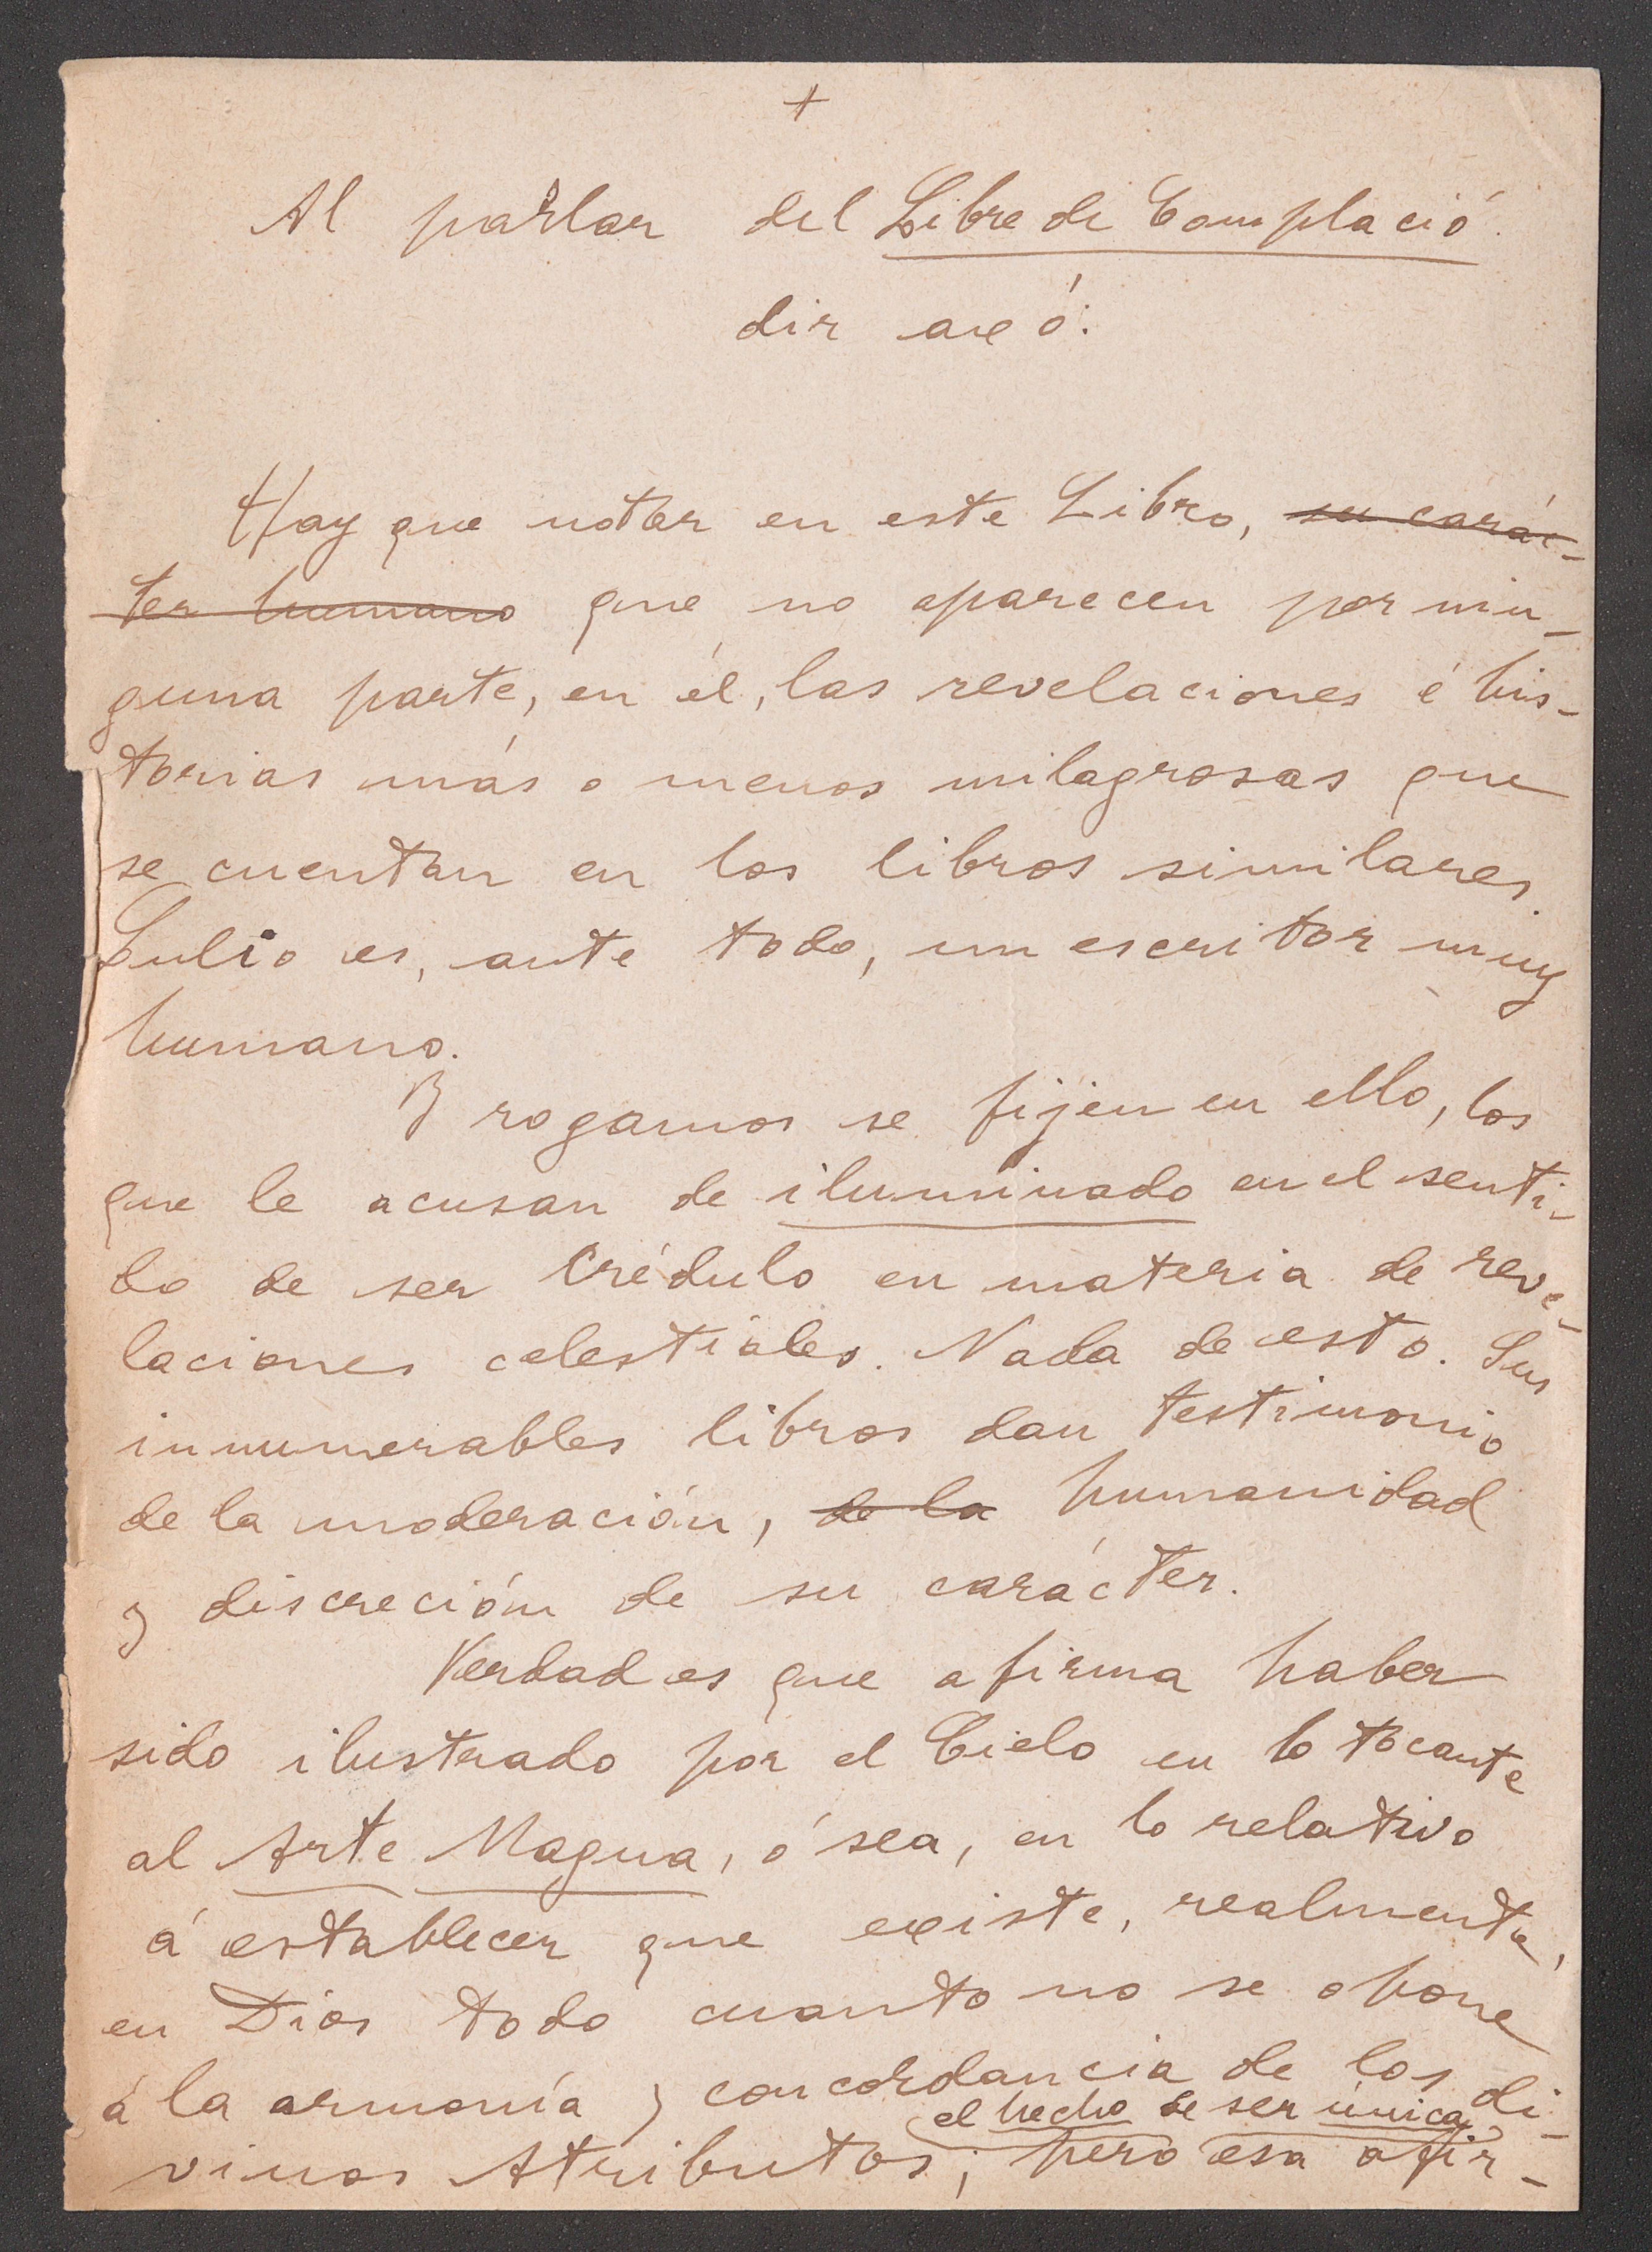 +
Al parlar del Libre de Complació
dir axó:
Hay que notar en este Libro, su carác-
ter humano que no aparecen por nin-
guna parte, en él, las revelaciones é his-
torias más o menos milagrosas que
se cuentan en los libros similares.
Lulio es, ante todo, un escritor muy
humano.
Y rogamos se fijen en ello, los
que le acusan de iluminado en el senti-
do de ser crédulo en materia de reve-
laciones celestiales. Nada de esto. Sus
innumerables libros dan testimonio
de la moderación, de la humanidad
y discreción de su carácter.
Verdad es que afirma haber
sido ilustrado por el Cielo en lo tocante
al Arte Magna, ó sea, en lo relativo
á establecer que existe, realmente,
en Dios todo cuanto no se opone
á la armonía y concordancia de los di-
el hecho de ser única
vinos Atributos; pero esa afir-